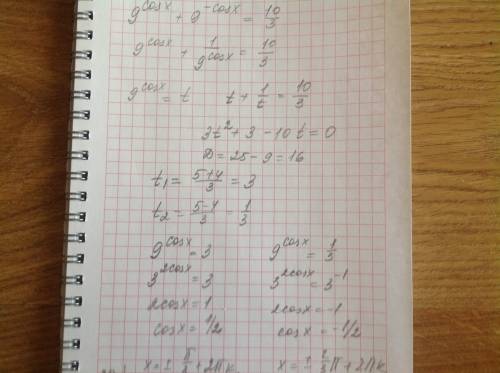 9^cosx + 9^-cosx = 10/3
9^cosx + 1/9^cosx = 10/3
9^cosx = t    t + 1/t = 10/3
3t² + 3 - 10t = 0
D = 25 - 9 = 16
t₁ = (5+4)/3 = 3
t₂ = (5-4)/3 = 1/3
9^cosx = 3    9^cosx = 1/3
3^2cosx = 3    3^2cosx = 3^-1
2cosx = 1    2cosx = -1
cosx = 1/2    cosx = -1/2
x = ± π/3 + 2πk    x = ± 2/3 π + 2πk